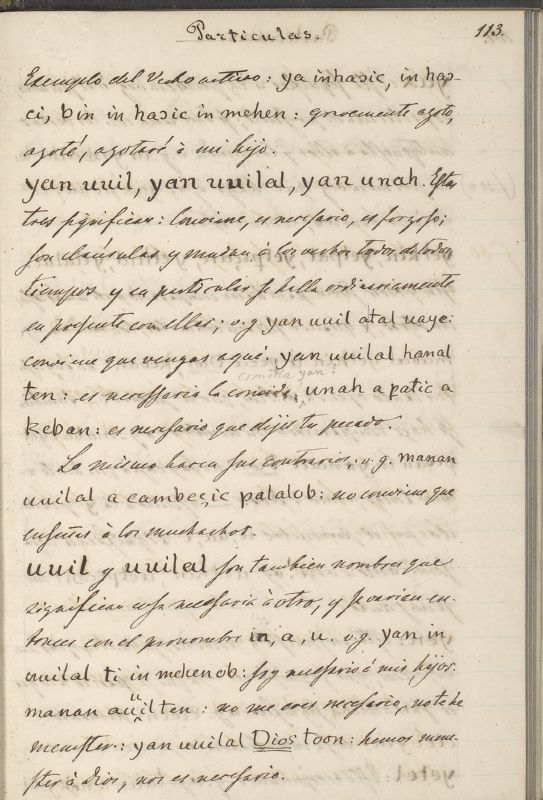 Particulas. 113.
Exemplo del Verbo activo: ya inhaɔic, in haɔ-
ci, bin in haɔic in mehen: gravemente azoto,
azoté, azotaré à mi hijo.
yan uuil, yan uuilal, yan unah. Estas
tres significan: Conviene, es necesario, es forzoso;
son cláusulas y mudan à los verbos todos de todos
tiempos y en particular se halla ordinariamente
en presente con ellas; v.g yan uuil atal uaye:
conviene que vengas aquí. yan uuilal hanal
comida yan?
ten: es necessario la comida, unah a patic a
keban: es necesario que dejes tu pecado.
Lo mismo hacen sus contrarios; v.g. manan
uuilal a cambeçic palalob: no conviene que
enseñes à los muchachos.
uuil y uuilal son tambien nombres que
significan cosa necesaria à otro, y se varian en-
tonces con el pronombre in, a, u. v.g. yan in
uuilal ti in mehenob: soy necesario à mis hijos:
manan aüil ten: no me eres necesario, no te he
menester: yan uuilal Dios toon: hemos mene-
ster à Dios, nos es necesario.